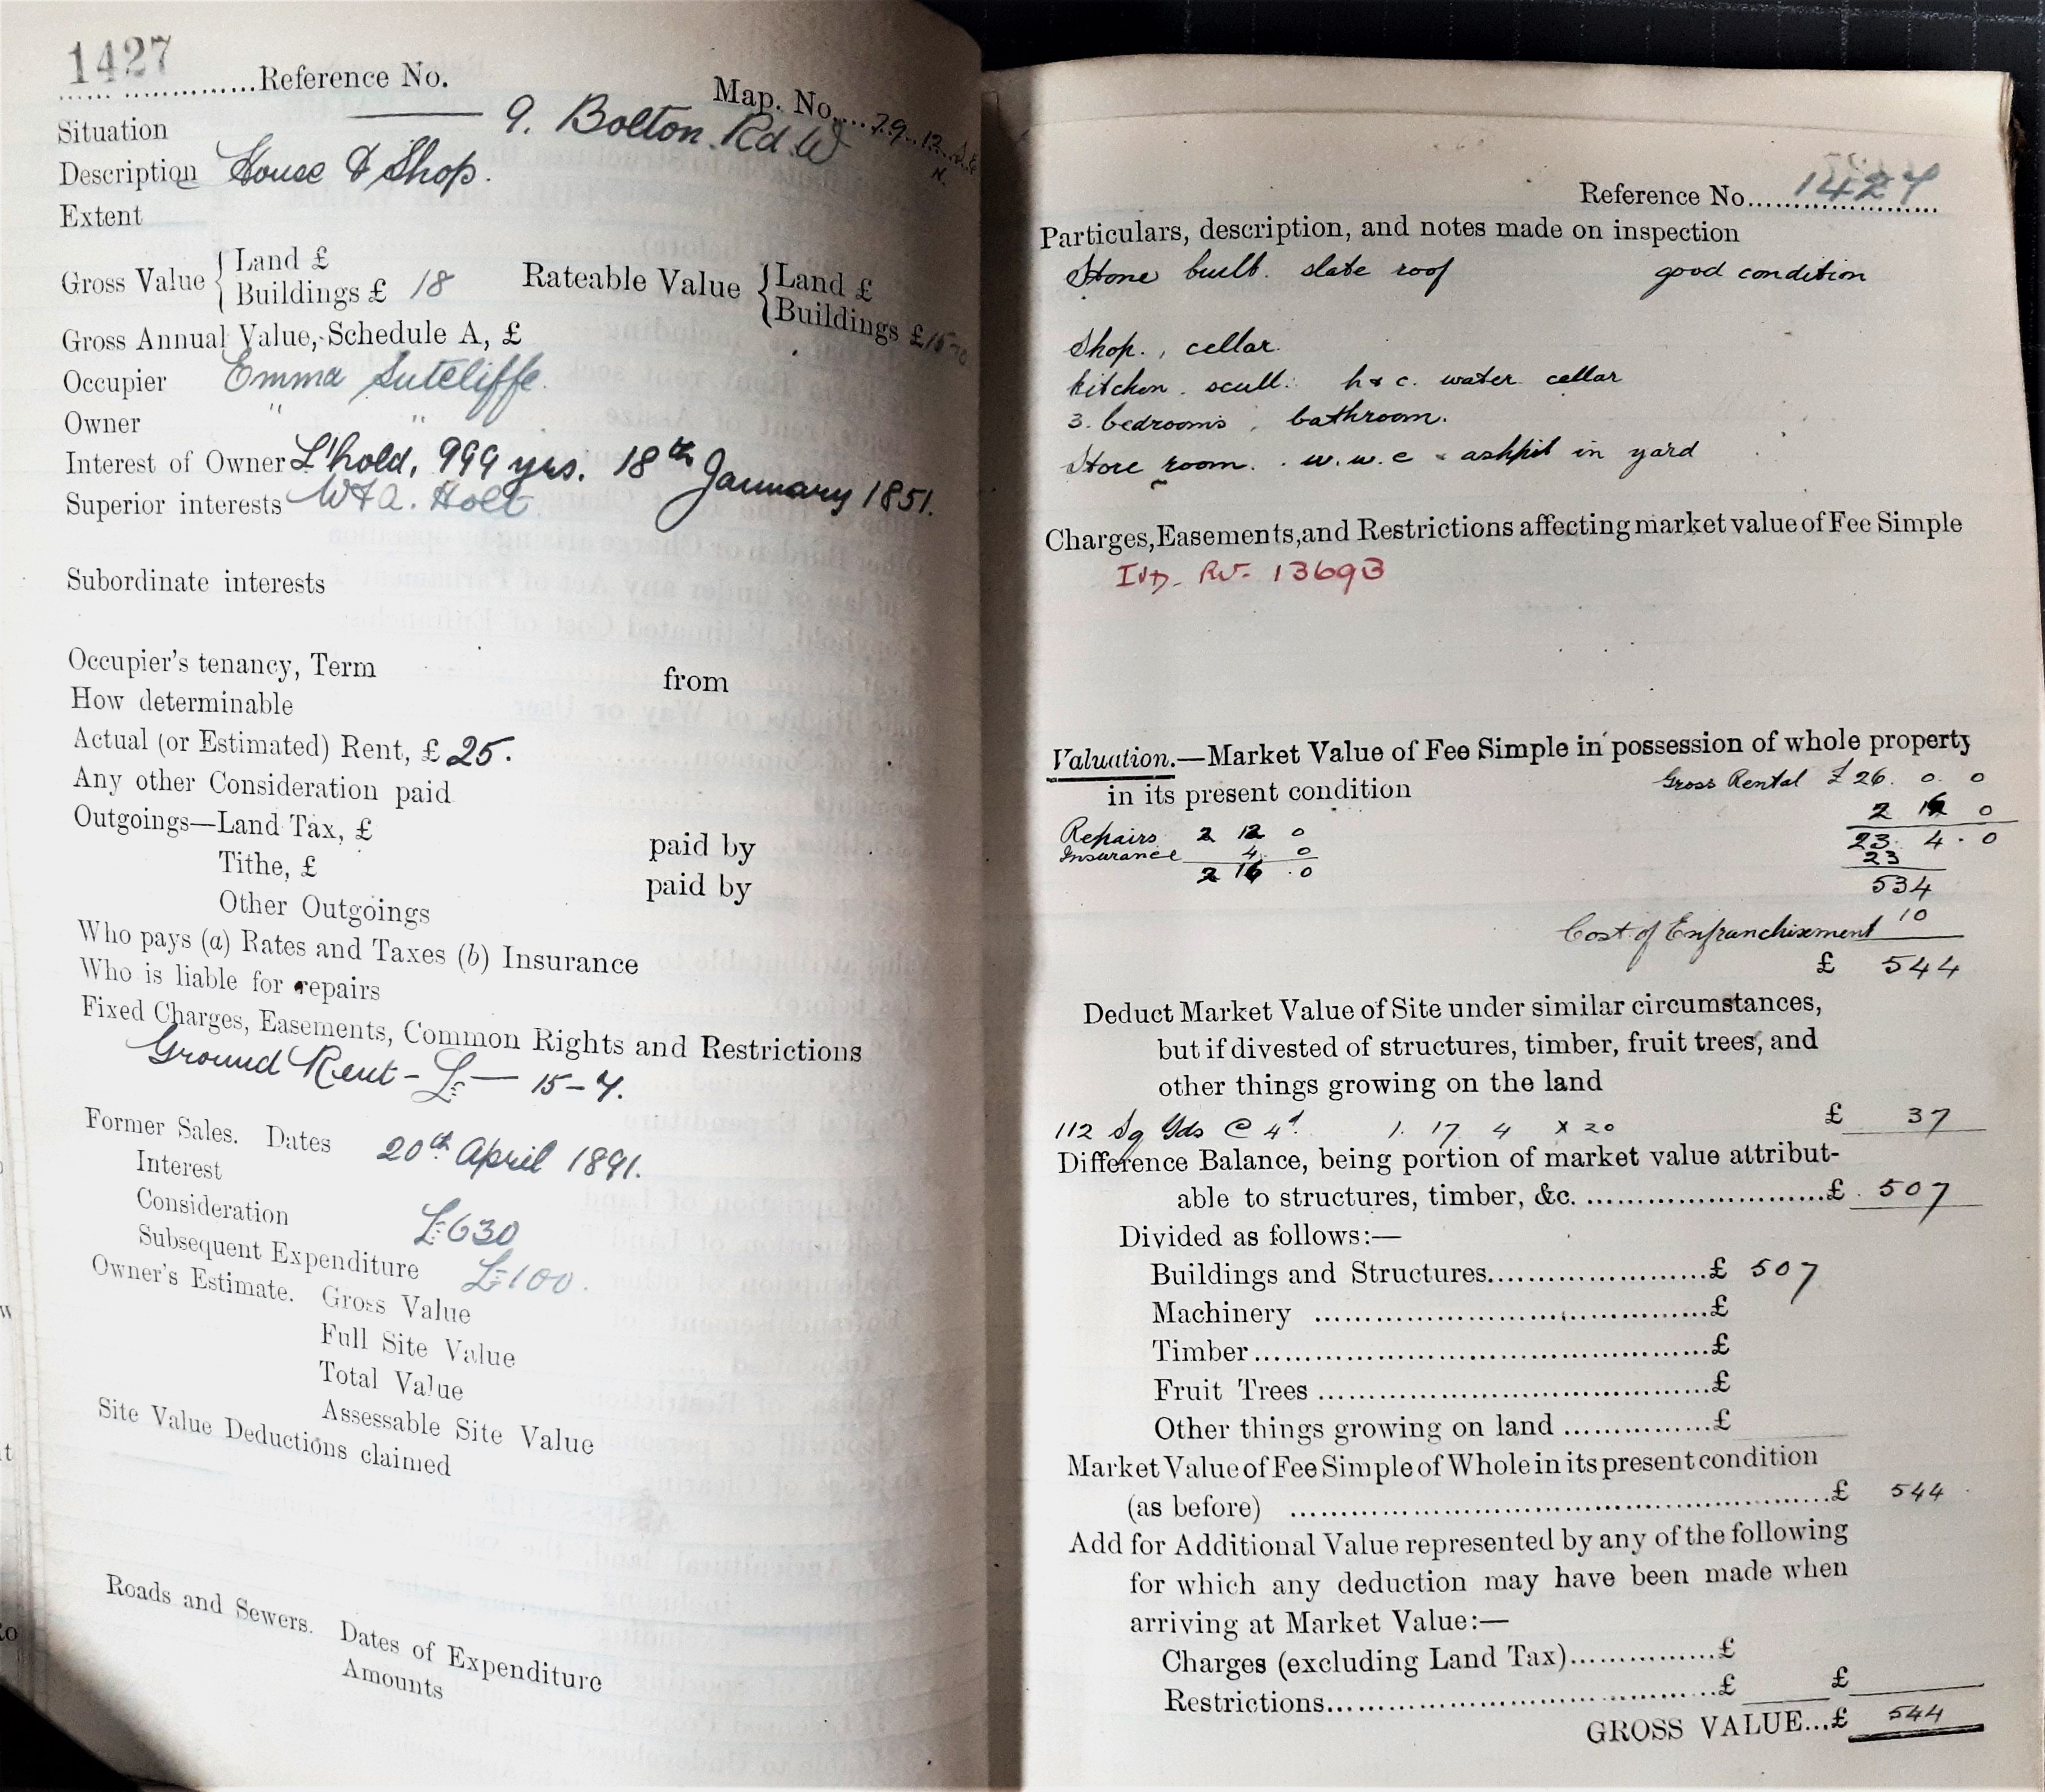 1427
Reference No.
Map. No. 79. 12. S.E
N.
Situation 9. Bolton. Rd. W
Description House & Shop.
Extent
Gross Value { Land £
Buildings £ 18
Rateable Value { Land £
Buildings £ 15
Gross Annual Value, Schedule A, £
Occupier Emma Sutcliffe.
Owner " "
Interest of Owner L'hold, 999 yrs. 18th January 1851.
Superior interests W & A. Holt
Subordinate interests
Occupier's tenancy, Term from
How determinable
Actual (or Estimated) Rent, £ 25.
Any other Consideration paid
Outgoings—Land Tax, £ paid by
Tithe, £ paid by
Other Outgoings
Who pays (a) Rates and Taxes (b) Insurance
Who is liable for repairs
Fixed Charges, Easements, Common Rights and Restrictions
Ground Rent - £ — 15 - 7.
Former Sales. Dates 20th April 1891.
Interest
Consideration £630
Subsequent Expenditure £100.
Owner's Estimate. Gross Value
Full Site Value
Total Value
Assessable Site Value
Site Value Deductions claimed
Roads and Sewers. Dates of Expenditure
Amounts
Reference No. 1427
Particulars, description, and notes made on inspection
Stone built. slate roof good condition
Shop., cellar.
kitchen. scull: h & c. water. cellar
3. bedrooms, bathroom.
Store room. w.w.c & ashpit in yard
Charges, Easements, and Restrictions affecting market value of Fee Simple
13693
Valuation.—Market Value of Fee Simple in possession of whole property
in its present condition
Gross Rental £ 26. 0. 0
2 16 0
Repairs 2 12 0
23. 4. 0
Insurance 4. 0
23
2 16. 0
534
Cost of Enfranchisement 10
£ 544
Deduct Market Value of Site under similar circumstances,
but if divested of structures, timber, fruit trees, and
other things growing on the land
112 Sq Yds @ 4d. 1. 17. 4 x 20 £ 37
Difference Balance, being portion of market value attribut-
able to structures, timber, &c. £ 507
Divided as follows:—
Buildings and Structures £ 507
Machinery £
Timber £
Fruit Trees £
Other things growing on land £
Market Value of Fee Simple of Whole in its present condition
(as before) £ 544
Add for Additional Value represented by any of the following
for which any deduction may have been made when
arriving at Market Value:—
Charges (excluding Land Tax) £
Restrictions £ £
GROSS VALUE...£ 544